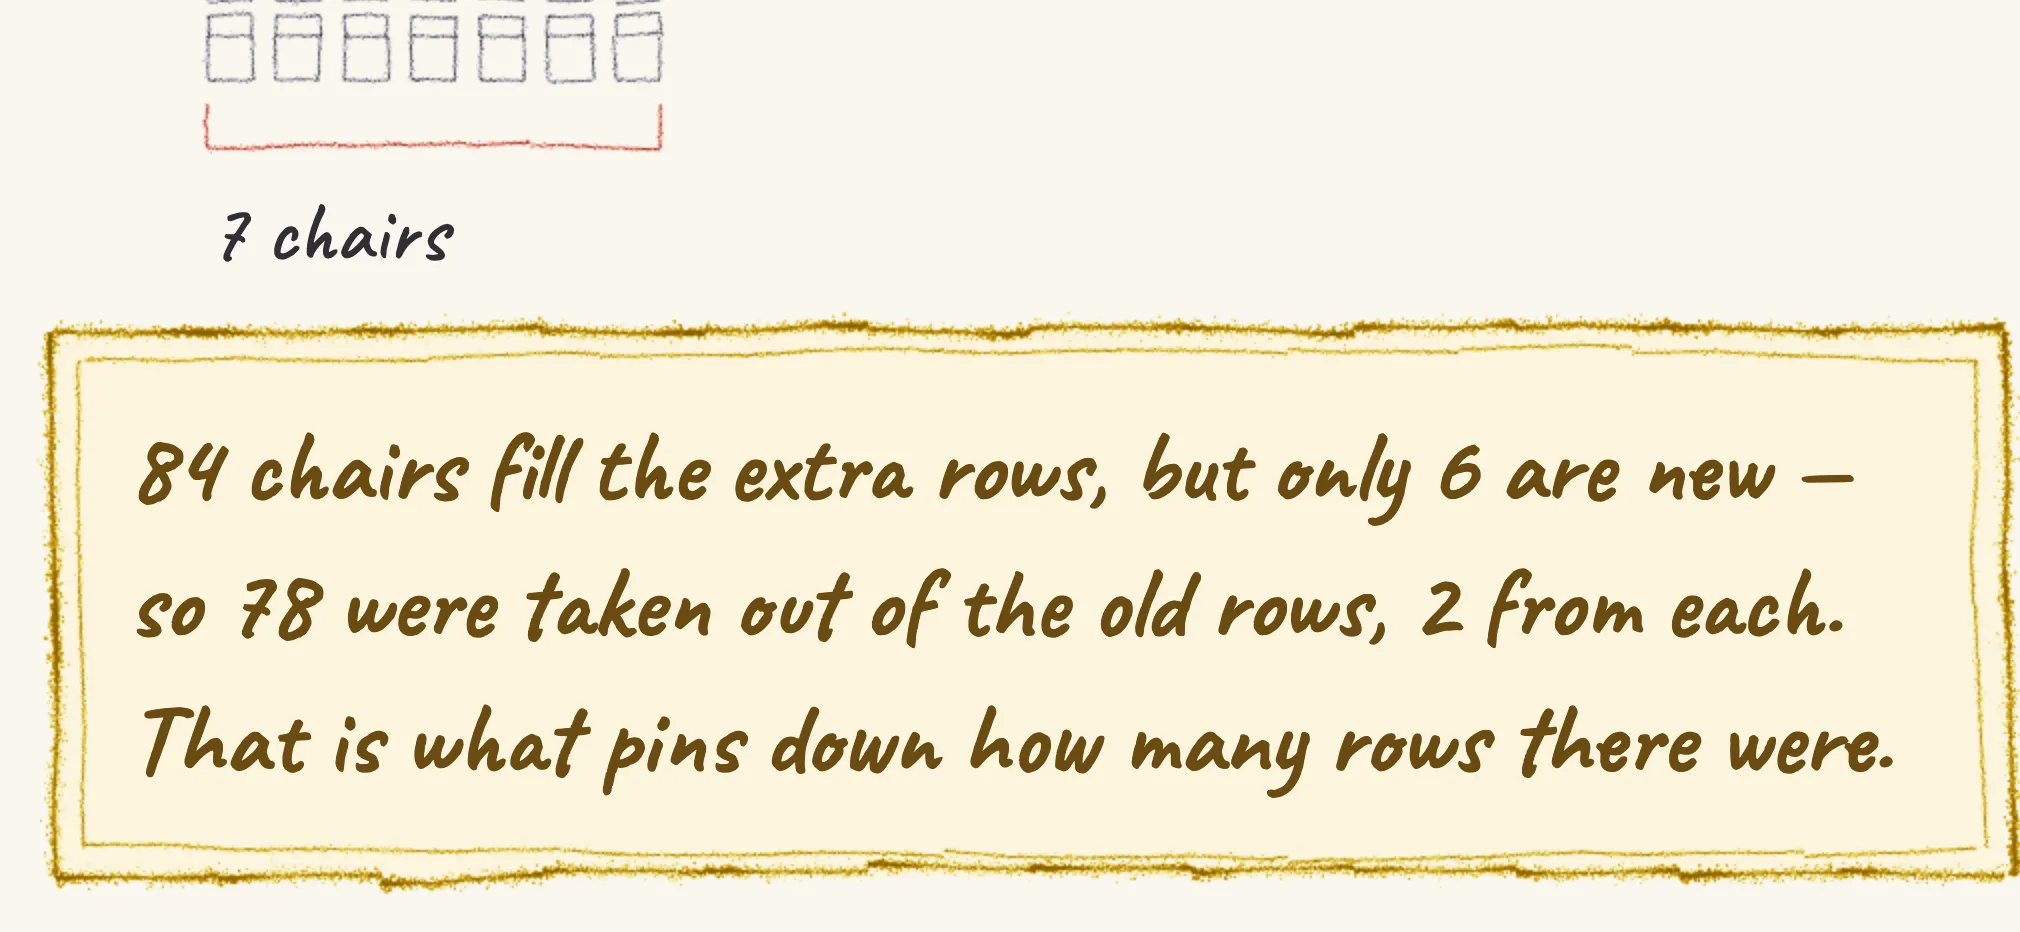 7 chairs
84 chairs fill the extra rows, but only 6 are new —
so 78 were taken out of the old rows, 2 from each.
That is what pins down how many rows there were.